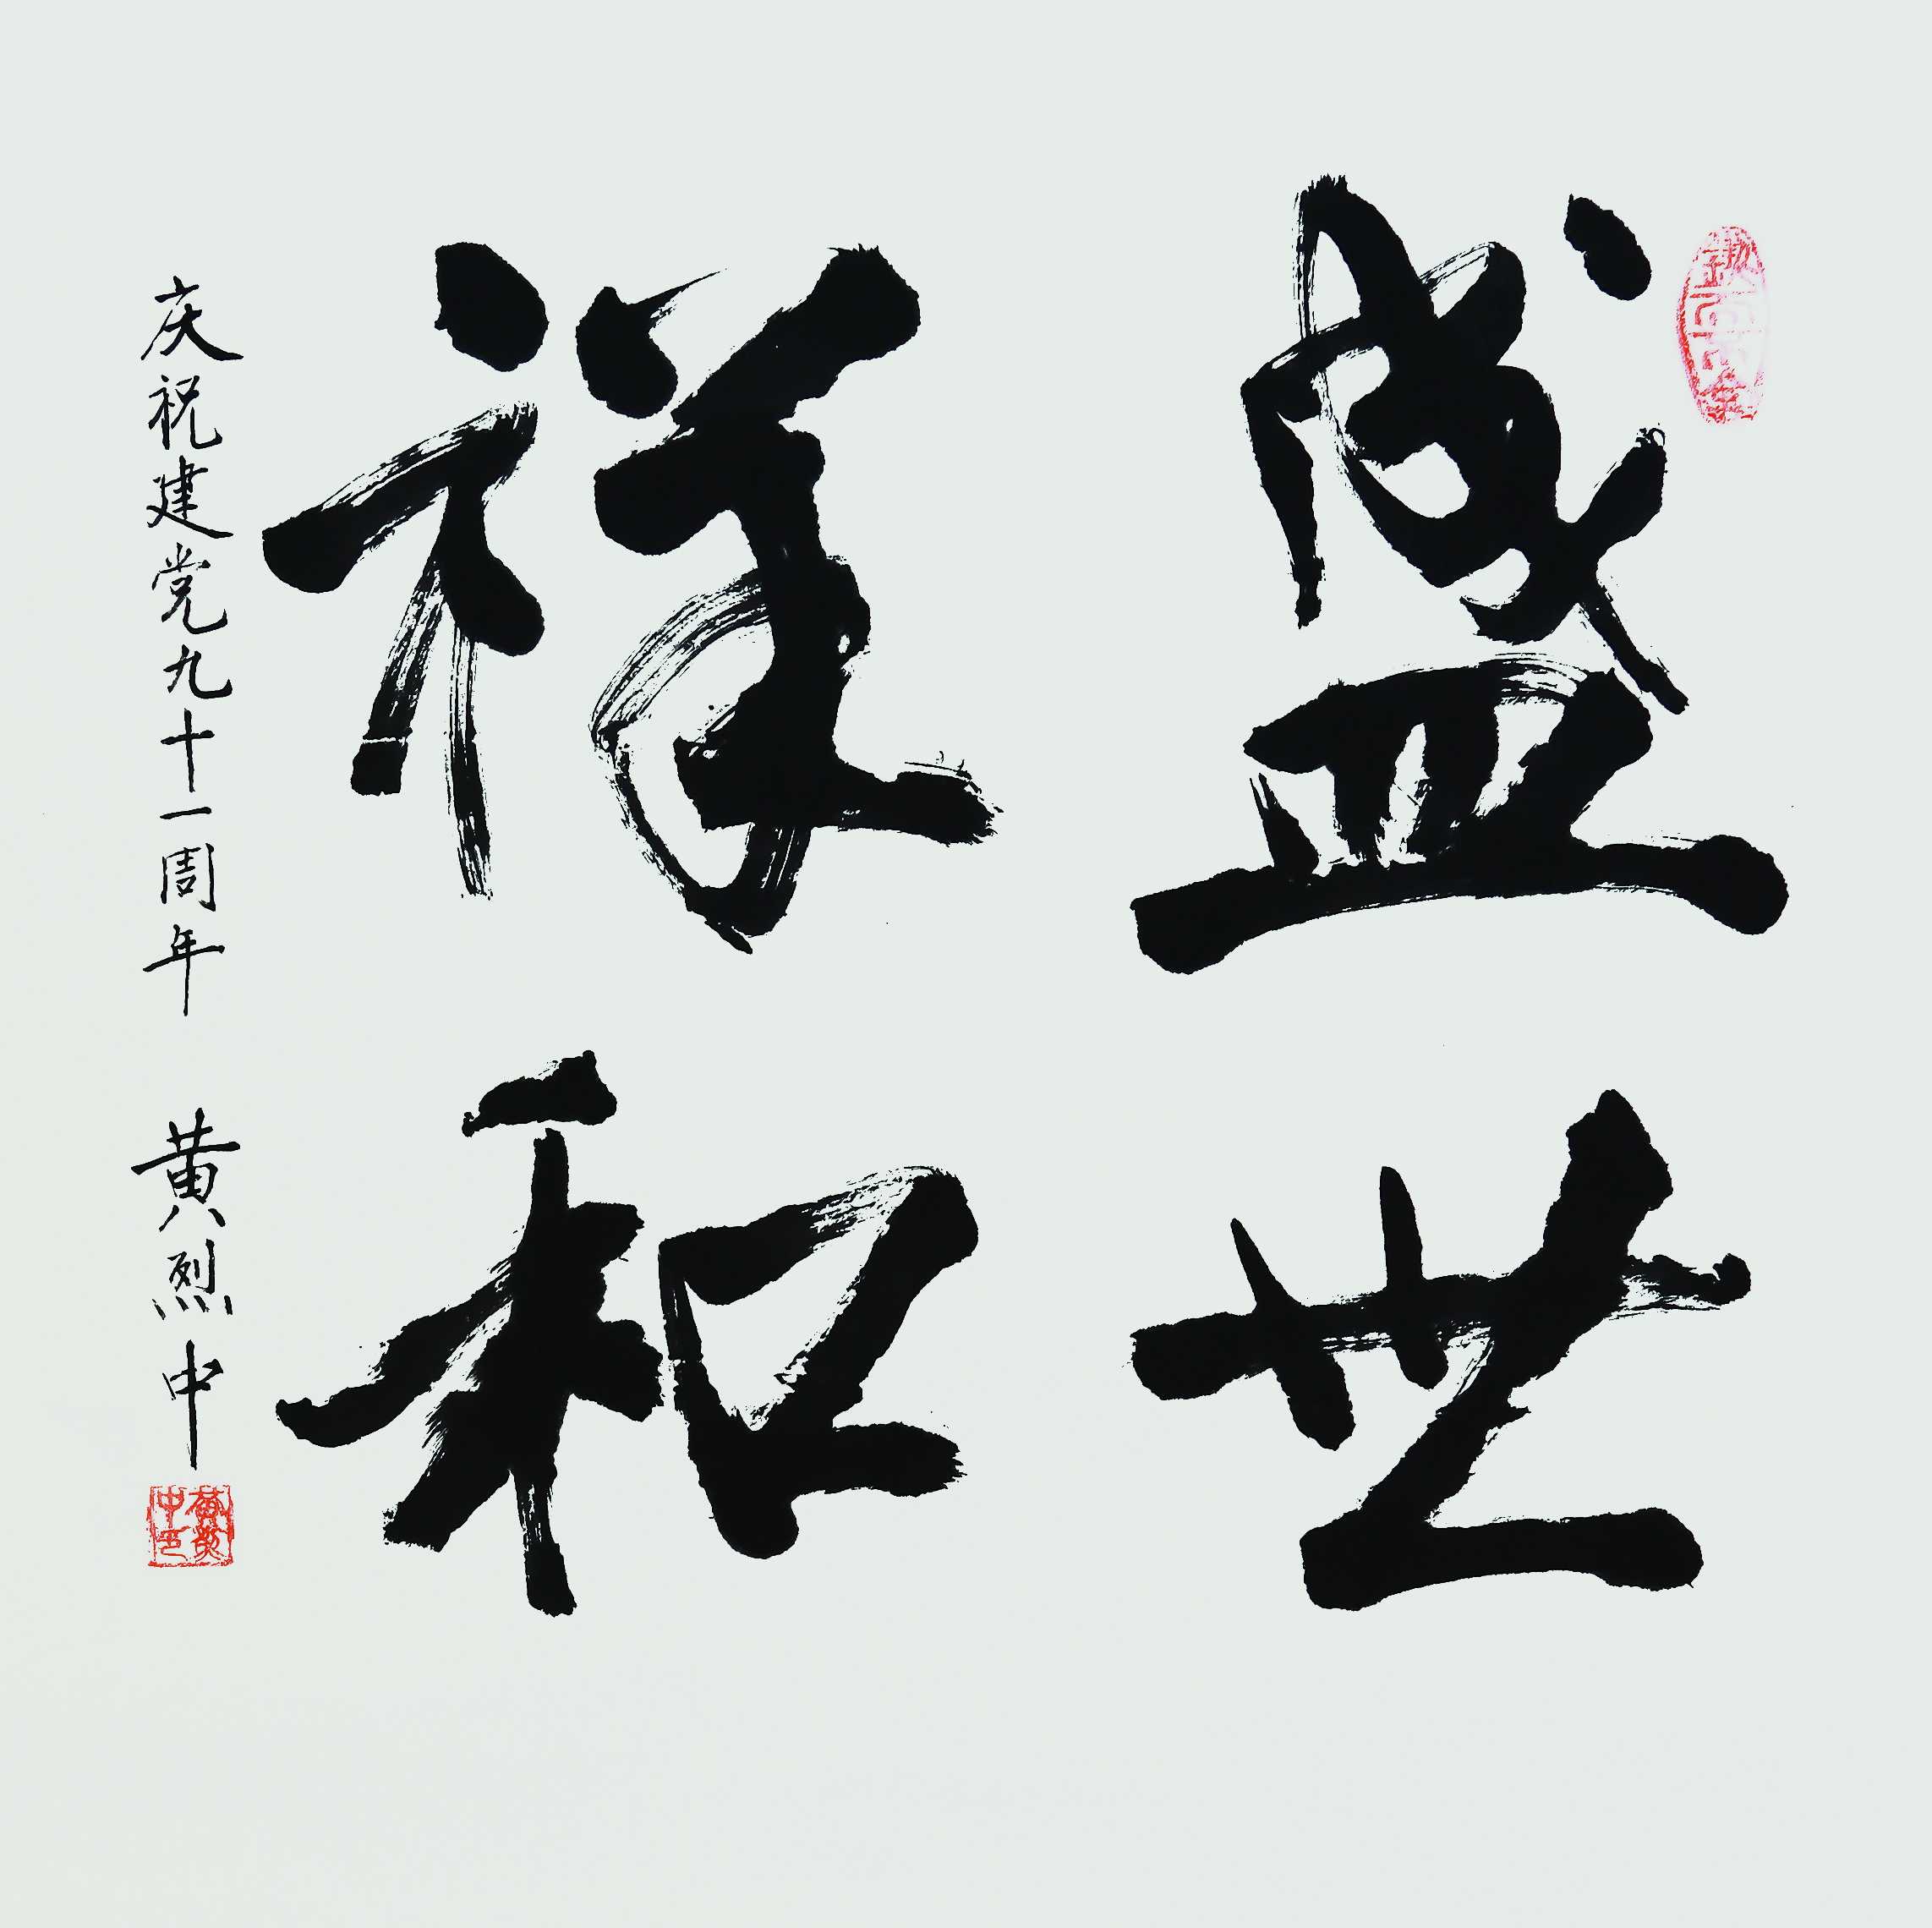 盛世
祥和
庆祝建党九十一周年 黄烈中
黄烈中印